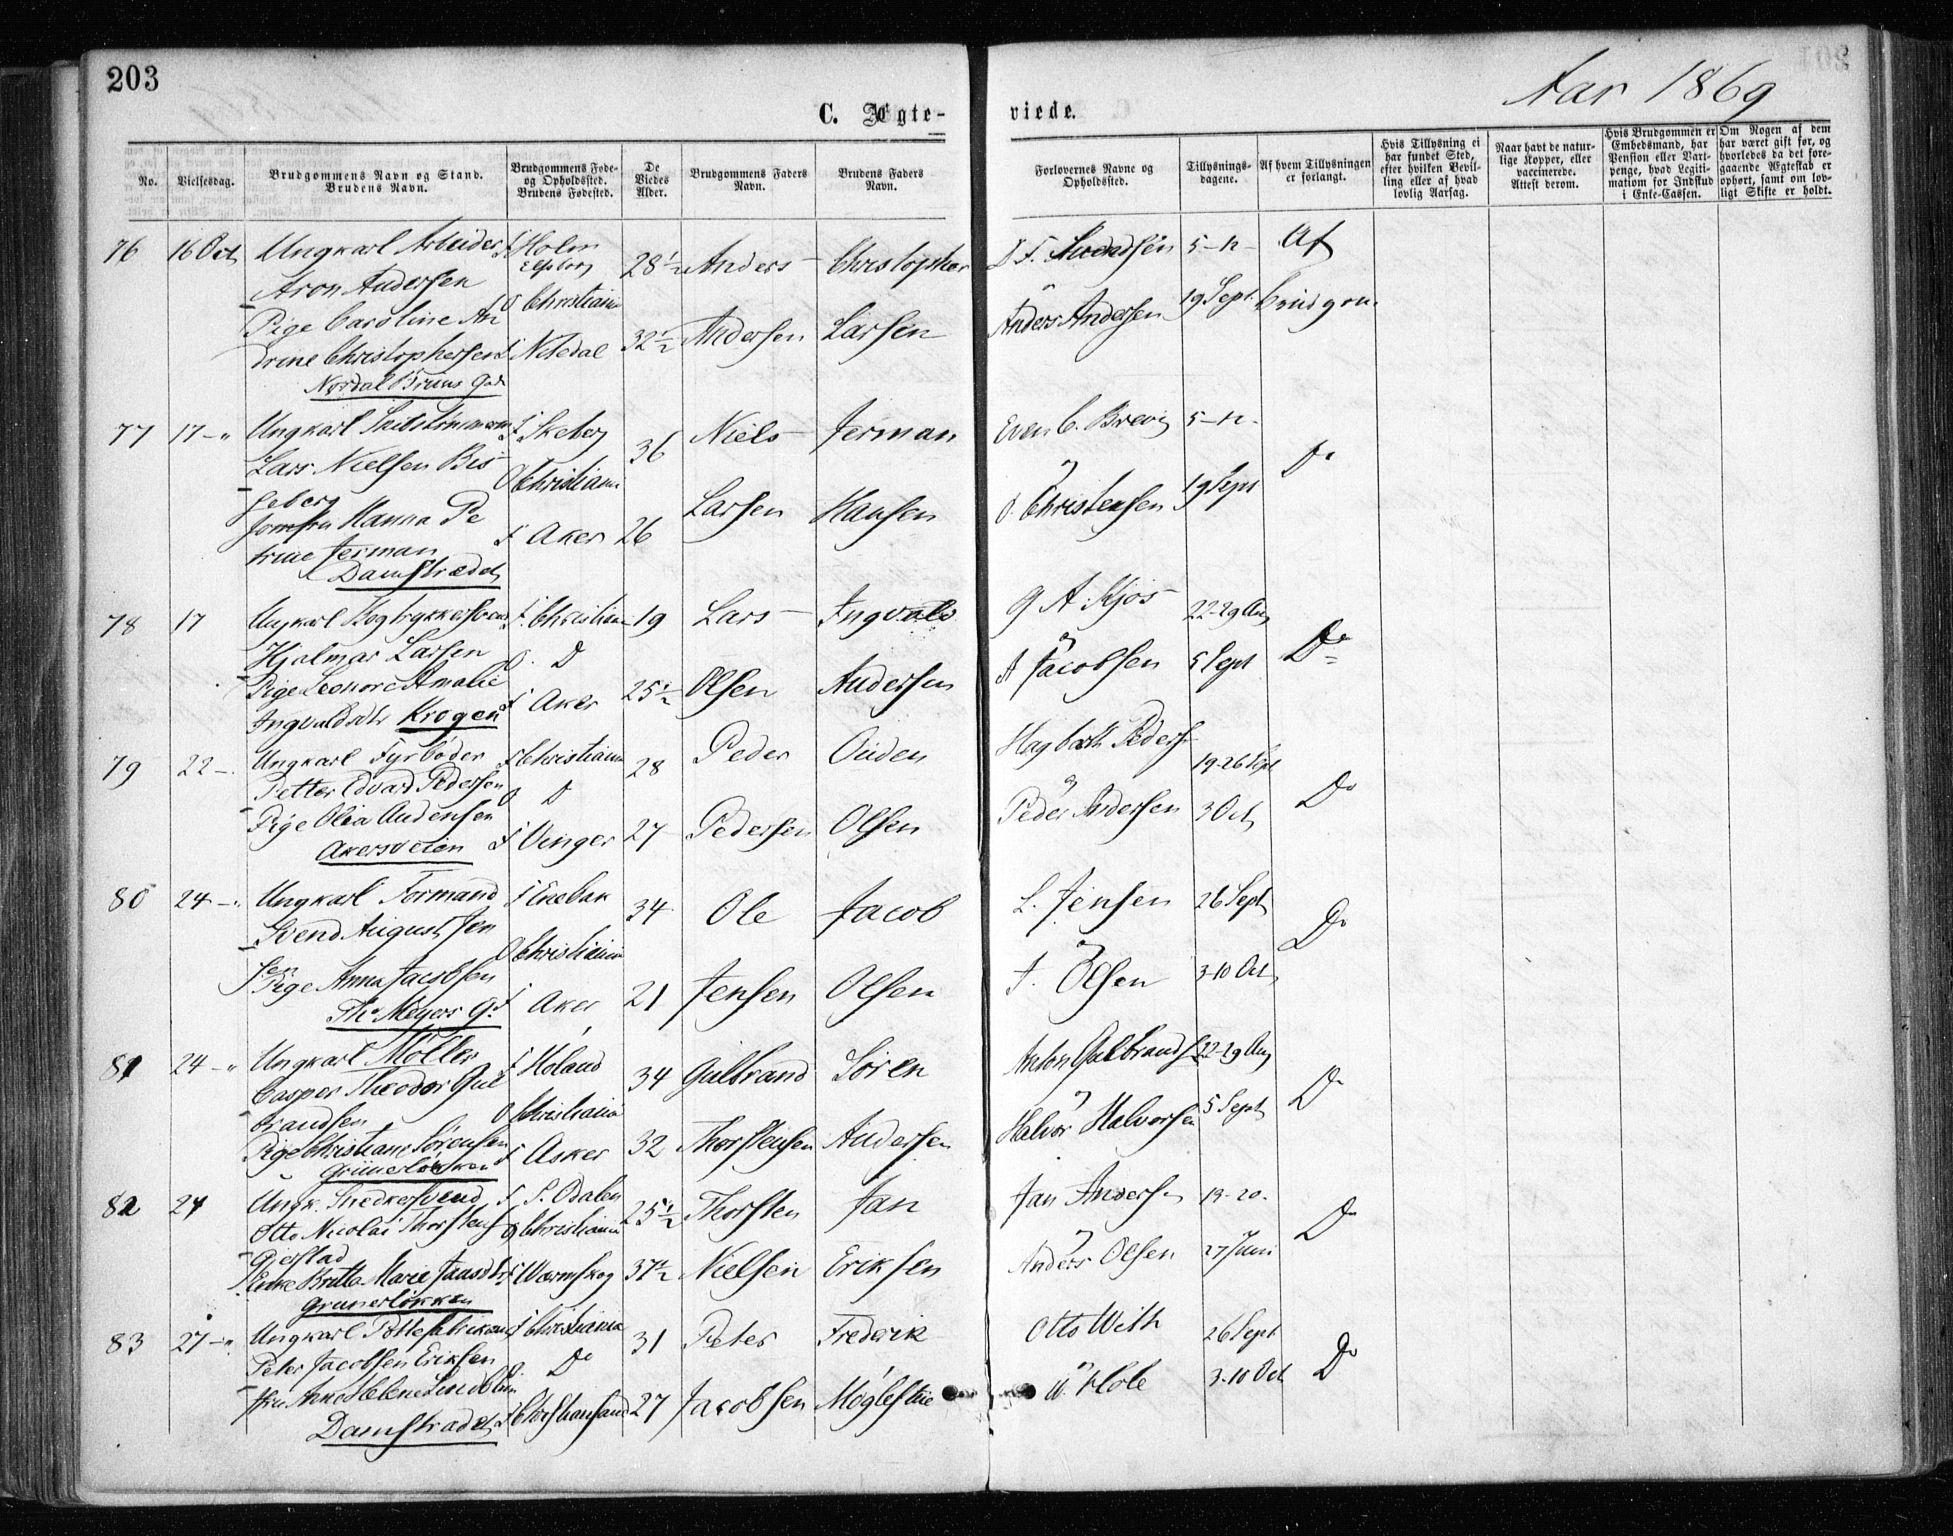 203
Aar 1869
C. Ægte-
viede.
No.
Vielsesdag.
Brudgommens Navn og Stand.
Brudens Navn.
Brudgommens Føde-
og Opholdssted.
Brudens Fødested.
De
Viedes
Alder.
Brudgommens Faders
Navn.
Brudens Faders
Navn.
Forlovernes Navne og
Opholdssted.
Tillysnings-
dagene.
Af hvem Tillysningen
er forlangt.
Hvis Tillysning ei
har fundet Sted,
efter hvilken Bevil-
ling eller af hvad
lovlig Aarsag.
Naar havt de natur-
lige Kopper, eller
vaccinerede.
Attest derom.
Hvis Brudgommen er
Embedsmand, har
Pension eller Vart-
penge, hvad Legiti-
mation for Indskud
i Enke-Cassen.
Om Nogen af dem
har været gift før, og
hvorledes da det fore-
gaaende Ægteskab er
ophørt, samt om lov-
ligt Skifte er holdt.
76 16 Oct Ungkarl Arbeider f Holm 28½ Anders Christopher 5-12- Af
Elfsborg
Aron Andersen O Christiania
Pige Caroline An Anders Andersen 19 Sept brudgom.
drine Christophersen f Nitedal 32½ Andersen Larsen
Nordal Bruns Gade
77 17 -" Ungkarl f Skeberg 36 Niels Jerman Even C. Brevig 5-12-
Lars Nielsen Bis O Christiania Do
geberg Larsen Hansen O. Christensen 19 Sept
Jomfru Hanna Pe f Aker 26
trine Jerman
Damstrædet
78 17 Ungkarl Bogtrykkersvend f. Christiania 19 Lars Ingvald G A Kjos 22-29 Aug
Hjalmar Larsen O. D A Jacobsen 5 Sept Do
Pige Leonore Amalie f Aker 25½ Olsen Andersen
Ingvaldsdtr Krogen
79 22 - Ungkarl Fyrbøder f Christiania 28 Peder Ouden Hagbarth Peders 19-26 Sept
Petter Edvard Pedersen O D Do
Pige Olea Audensen f Vinger 27 Pedersen Olsen Peder Andersen 3 Oct
Akersveien
80 24 -" Ungkarl Formand f Enebak 34 Ole Jacob L. Jensen 26 Sept
Svend August Jen O Christiania Do
sen
Pige Anna Jacobsen f Aker 21 Jensen Olsen J. Olsen 3-10 Oct
Ths Meyers Gd
81 24 -" Ungkarl Møller f Høland 34 Gulbrand Søren Anton Gulbrands 22-29 Aug
Casper Theodor Gul O Christiania Do
brandsen Halvor Halvorsen 5 Sept
Pige Christiane Sørensen f Asker 32 Thorstensen Andersen
Grünerløkken
82 24 Ungk. Snedkersvend f S. Odalen 25½ Thorsten Jan Jan Anders 13-20-
Otto Nicolai Thorstens O Christiania Do
Gjerstad
Enke Britta Marie Jansdtr f Værmskog 37½ Nielsen Eriksen Anders Olsen 27 Juni
Grünerløkken
83 27 -" Ungkarl Pottefabrikant f Christiania 31 Peter Frederik Otto With 26 Sept
Peter Jacobsen Eriksen O Do Do
Helene f Christiansand 27 Jacobsen 3-10 Oct
Damstrædet